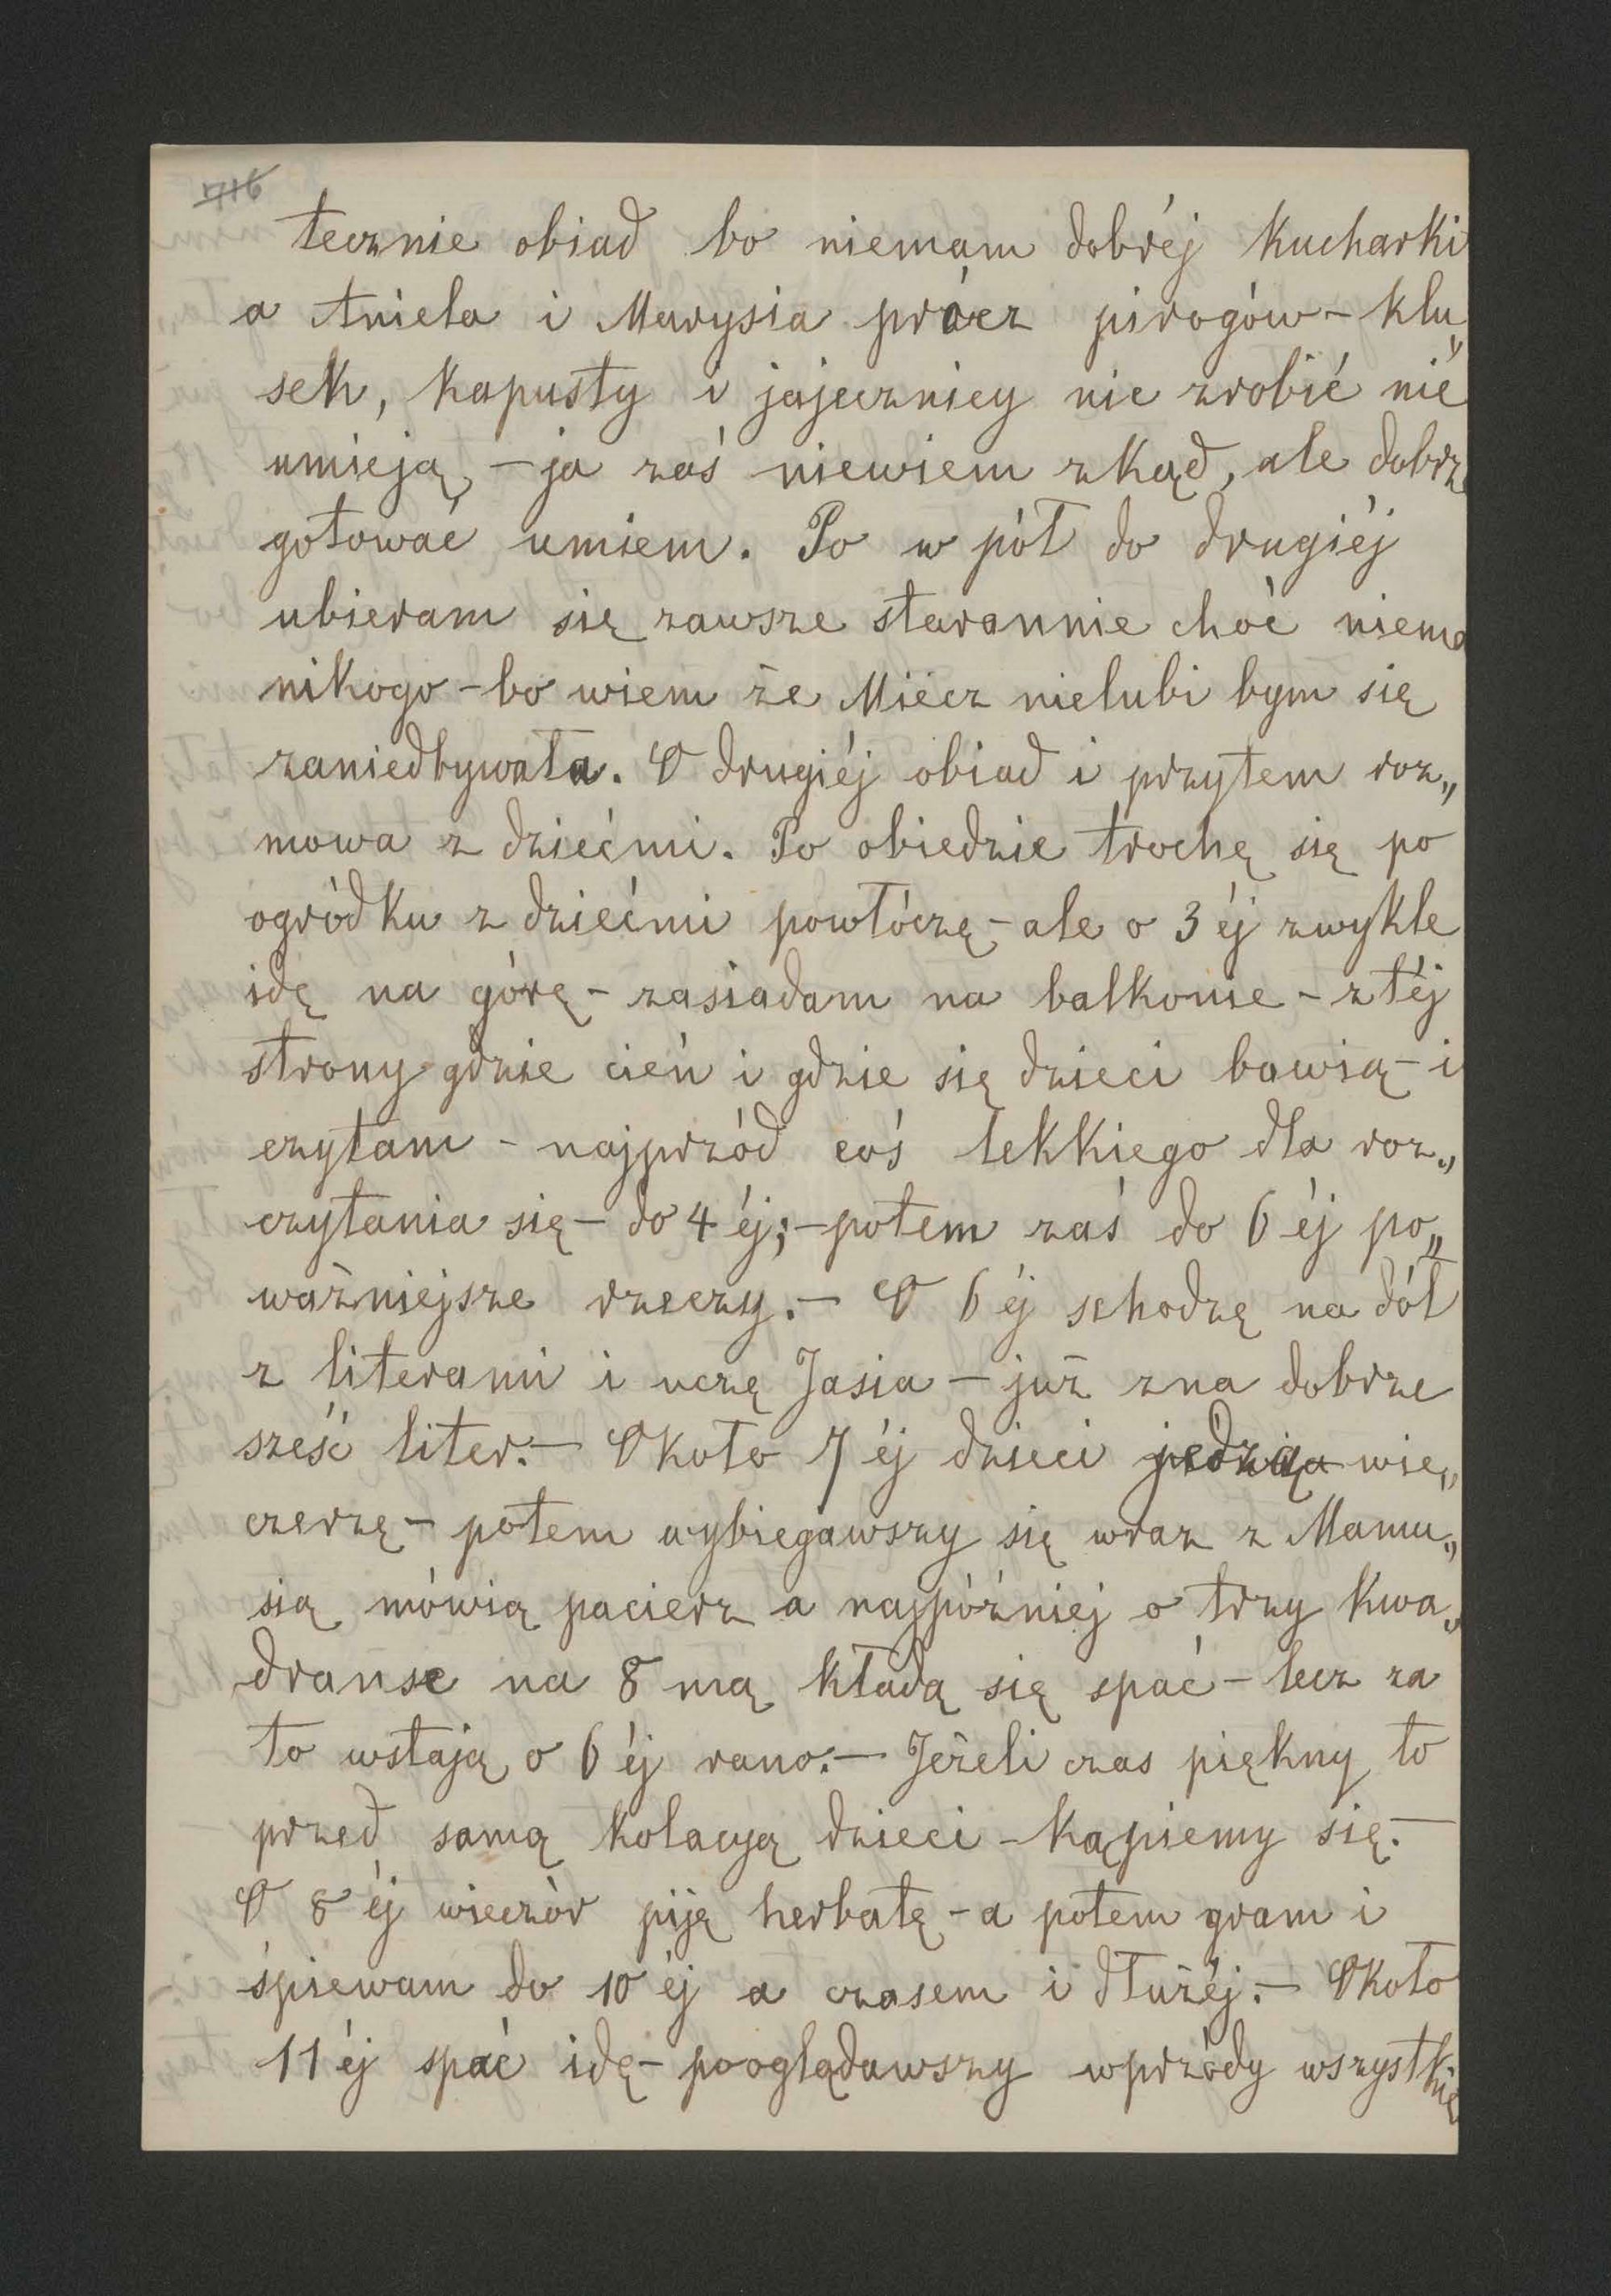 716
tecznie obiad bo niemam dobréj kucharki
a Aniela i Marysia prócz pirogów – klu„
sek, kapusty i jajecznicy nic zrobić nie
umieją, – ja zaś niewiem zkąd, ale dobrze
gotować umiem. Po w pół do drugiéj
ubieram się zawsze starannie choć niema
nikogo – bo wiem że Miecz nielubi bym się
zaniedbywała. O drugiéj obiad i przytem roz„
mowa z dziećmi. Po obiedzie trochę się po
ogródku z dziećmi powłóczę – ale o 3 éj zwykle
idę na górę – zasiadam na balkonie – z téj
strony gdzie cień i gdzie się dzieci bawią – i
czytam – najprzód coś lekkiego dla roz„
czytania się – do 4 éj; – potem zaś do 6 éj po„
ważniejsze rzeczy. – O 6 éj schodzę na dół
z literami i uczę Jasia – już zna dobrze
sześć liter. – Około 7 éj dzieci jedzą wie„
czerzę – potem wybiegawszy się wraz z Mamu„
sią mówią pacierz a najpóźniej o trzy kwa„
dranse na 8 mą kładą się spać – lecz za
to wstają o 6 éj rano. – Jeżeli czas piękny to
przed samą kolacyą dzieci – kąpiemy się. –
O 8 éj wieczór piję herbatę – a potem gram i
śpiewam do 10 éj a czasem i dłużéj. – Około
11 éj spać idę – pooglądawszy wprzódy wszystkie